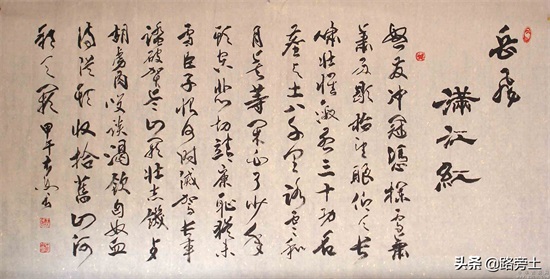 岳飛
滿江紅
怒髮冲冠憑欄處瀟
瀟雨歇抬望眼仰天長
嘯壯懷激烈三十功名
塵与土八千里路雲和
月莫等閑白了少年
頭空悲切靖康恥猶未
雪臣子恨何時滅駕長車
踏破賀蘭山缺壯志饑餐
胡虜肉笑談渴飲匈奴血
待從頭收拾舊山河
朝天闕甲午書
头条@路旁土